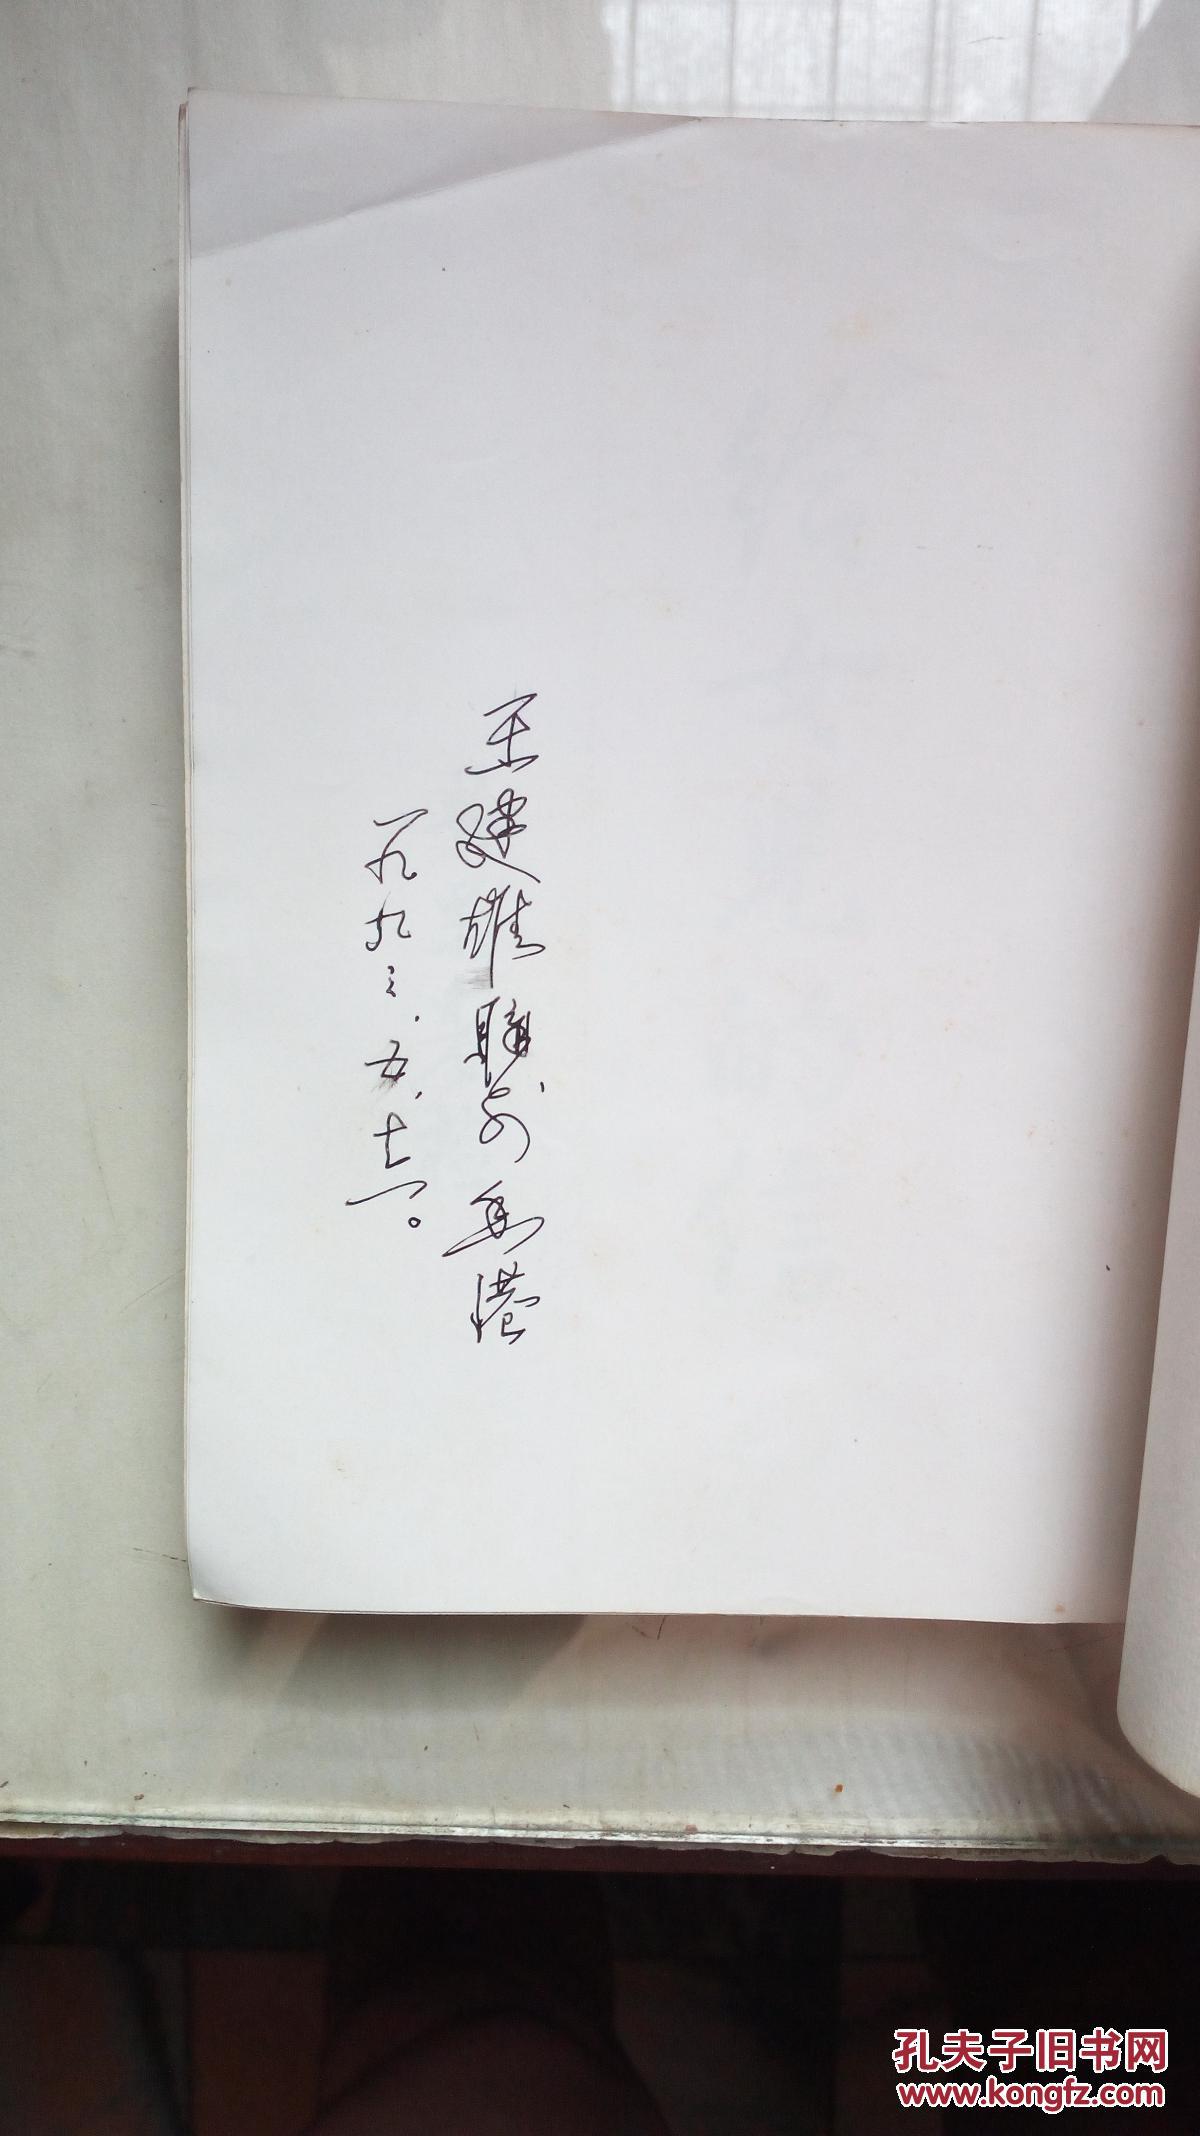 王建雄購於香港
一九九三.五.十一。
孔夫子旧书网
www.kongfz.com